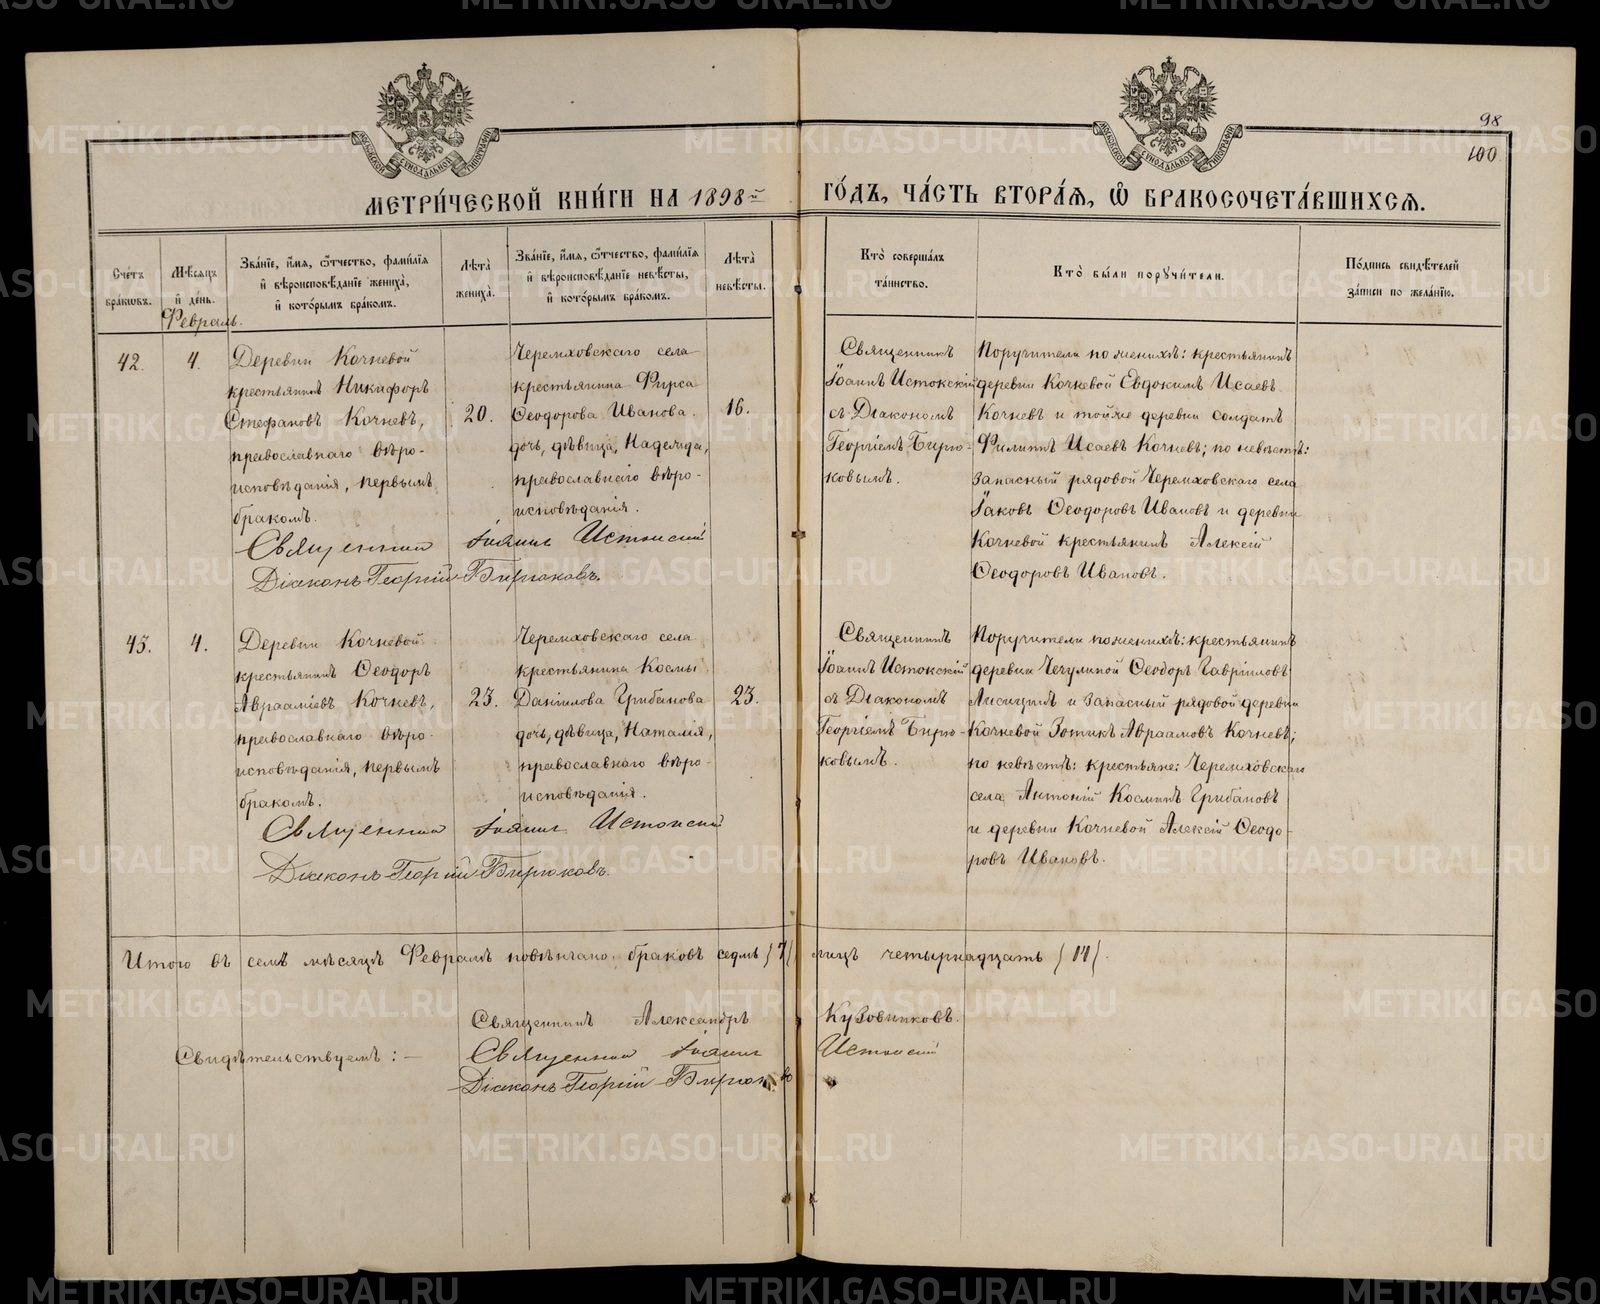 98
100
МОСКОВСКОЙ СѴНОДАЛЬНОЙ ТИПОГРАФІИ
МЕТРИ́ЧЕСКОЙ КНИ́ГИ НА 1898 й ГО́ДЪ, ЧА́СТЬ ВТОРА́Ѧ, Ѽ БРАКОСОЧЕТА́ВШИХСѦ.
Сче́тъ бра́кѡвъ.
Мѣ́сѧцъ и҆ де́нь.
Зва́нїе, и҆́мѧ, ѻ҆́тчество, фамилїѧ
и҆ вѣроисповѣ́данїе жениха̀,
и҆ кото́рымъ бра́комъ.
Лѣта̀ жениха̀.
Зва́нїе, и҆́мѧ, ѻ҆́тчество, фами́лїѧ
и҆ вѣроисповѣ́данїе невѣ́сты,
и҆ кото́рымъ бра́комъ.
Лѣта̀ невѣ́сты.
Кто̀ соверша́лъ та́инство.
Кто̀ бы́ли порꙋчи́тели.
По́дпись свидѣ́телей за́писи по жела́нїю.
Февраль.
42.
4.
Деревни Кочневой
крестьянинъ Никифоръ
Стефановъ Кочневъ,
православнаго вѣро-
исповѣданія, первымъ
бракомъ.
20.
Черемховскаго села
крестьянина Фирса
Ѳеодорова Иванова
дочь, дѣвица, Надежда,
православнаго вѣро-
исповѣданія.
16.
Священникъ
Іоаннъ Истокскій
съ Діакономъ
Георгіемъ Бирю-
ковымъ.
Поручители по женихѣ: крестьянинъ
деревни Кочневой Евдокимъ Исаевъ
Кочневъ и тойже деревни солдатъ
Филиппъ Исаевъ Кочневъ; по невѣстѣ:
Запасный рядовой Черемховскаго села
Іаковъ Ѳеодоровъ Ивановъ и деревни
Кочневой крестьянинъ Алексій
Ѳеодоровъ Ивановъ.
Священник Іоанн Истокский
Діаконъ Георгій Бирюковъ.
43.
4.
Деревни Кочневой
крестьянинъ Ѳеодоръ
Авраамiевъ Кочневъ,
православнаго вѣро-
исповѣданія, первымъ
бракомъ.
23.
Черемховскаго села
крестьянина Космы
Даніилова Грибанова
дочь, дѣвица, Наталія,
православнаго вѣро-
исповѣданія.
23.
Священникъ
Іоаннъ Истокскій
съ Діакономъ
Георгіемъ Бирю-
ковымъ.
Поручители по женихѣ: крестьянинъ
деревни Чечулиной Ѳеодоръ Гавріиловъ
Лисицинъ и Запасный рядовой деревни
Кочневой Зотикъ Авраамовъ Кочневъ;
по невѣстѣ: крестьяне: Черемховскаго
села, Антоній Косминъ Грибановъ
и деревни Кочневой Алексій Ѳеодо-
ровъ Ивановъ.
Священник Іоанн Истокский
Діаконъ Георгій Бирюковъ.
Итого въ семъ мѣсяцѣ Февралѣ повѣнчано браковъ седмь /7/ лицъ четырнадцать /14/.
Священникъ Александръ Кузовниковъ.
Свидѣтельствуемъ: — Священник Іоанн Истокский
Діаконъ Георгій Бирюков
METRIKI.GASO-URAL.RU